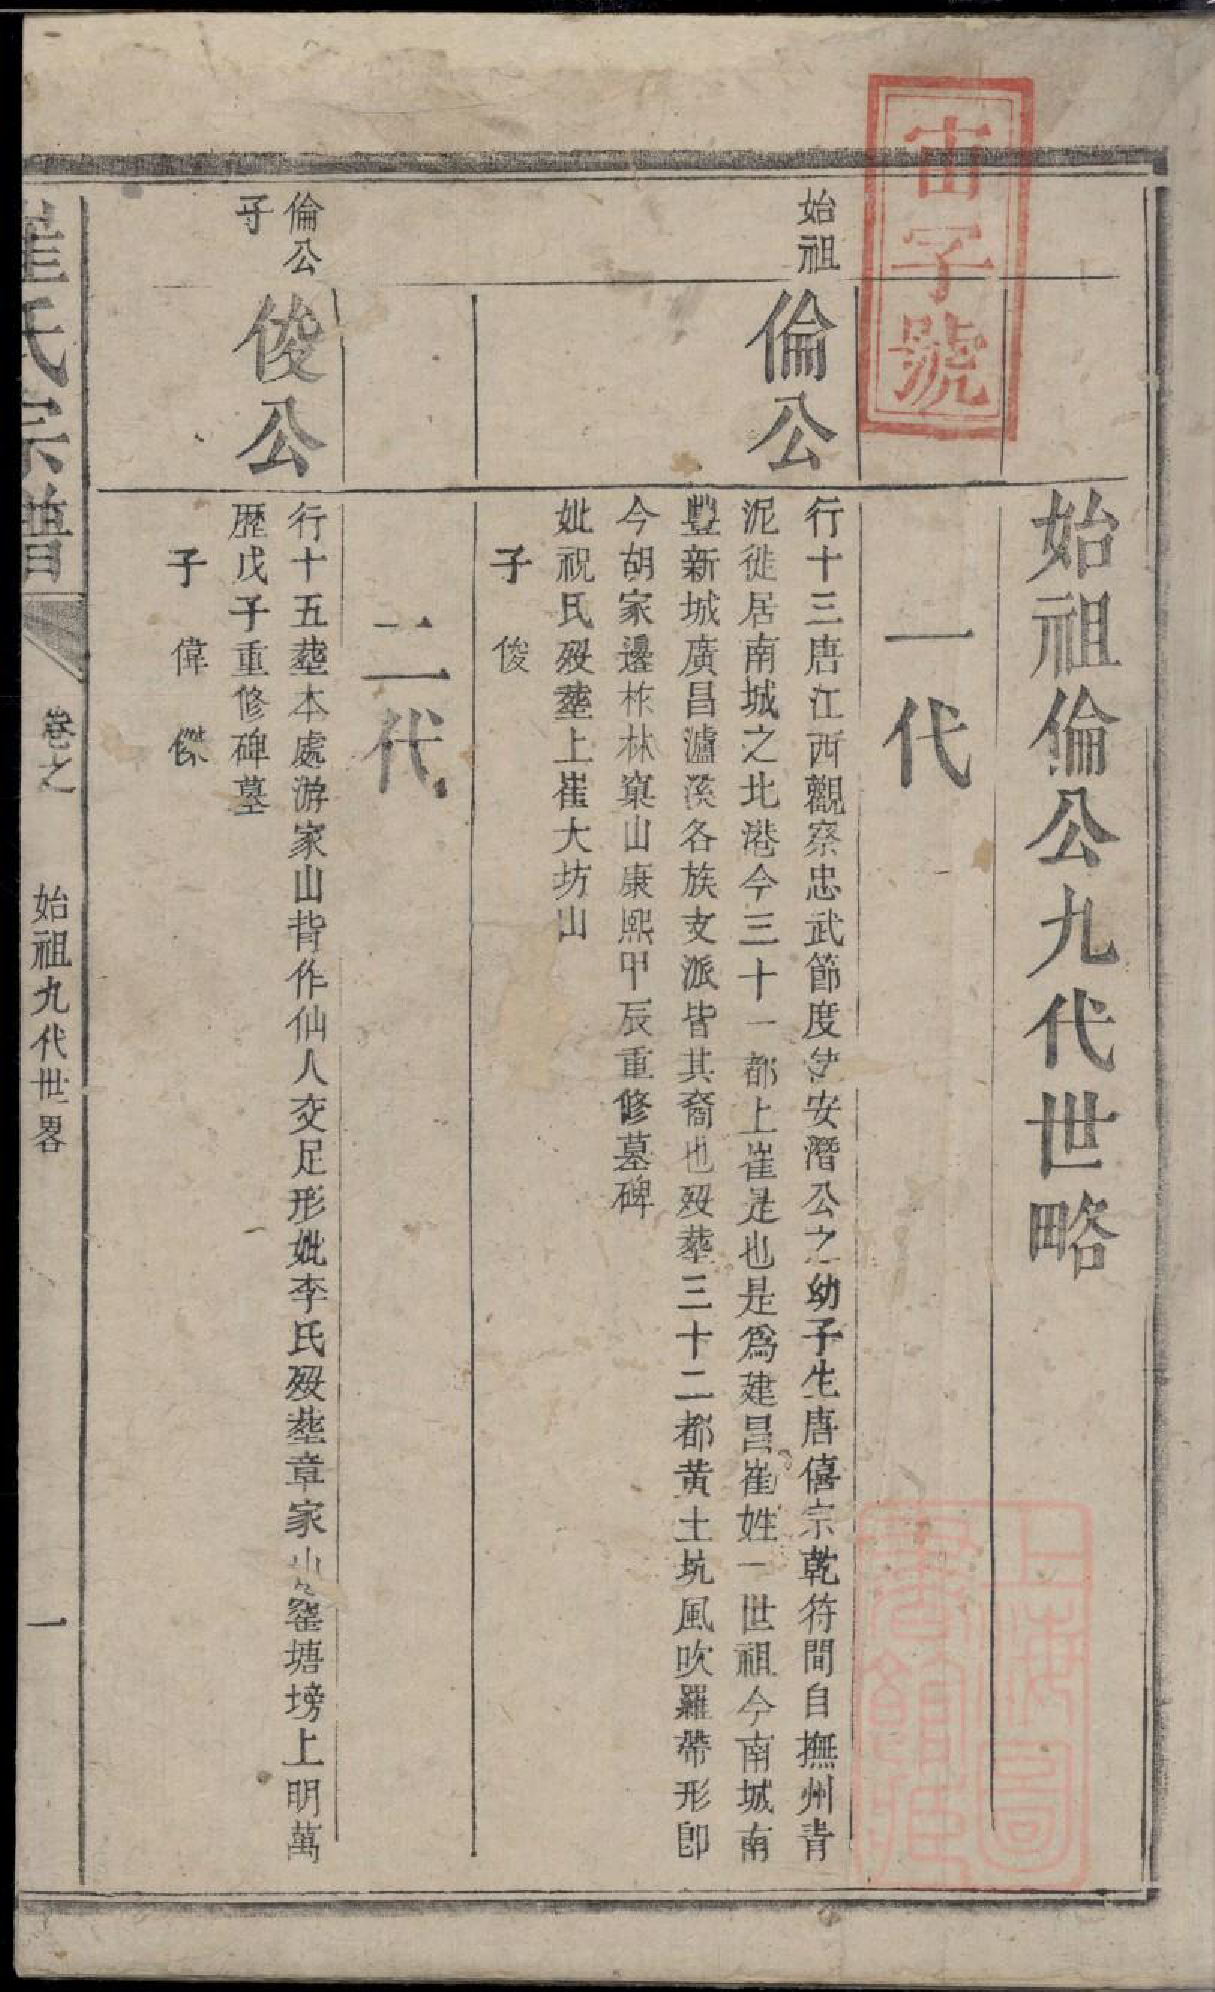 宙字號
始祖倫公九代世略
一代
始祖
倫公
行十三唐江西觀察忠武節度使安潛公之幼子生唐僖宗乾符間自撫州青
泥徙居南城之北港今三十一都上崔是也是爲建昌崔姓一世祖今南城南
豐新城廣昌瀘溪各族支派皆其裔也歿塟三十二都黄土坑風吹羅帶形卽
今胡家邊柞林窠山康熙甲辰重修墓碑
妣祝氏歿塟上崔大坊山
子 俊
二代
倫公
子
俊公
行十五塟本處游家山背作仙人交足形妣李氏歿塟章家山窰塘塝上明萬
歷戊子重修碑墓
子 偉 傑
崔氏宗譜
卷之
始祖九代世畧
一
上海圖
書館藏